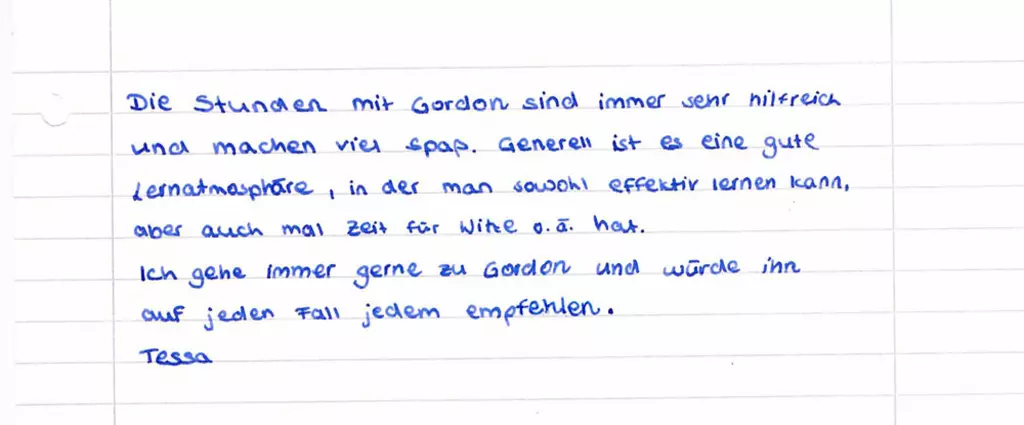 Die Stunden mit Gordon sind immer sehr hilfreich
und machen viel Spaß. Generell ist es eine gute
Lernatmosphäre, in der man sowohl effektiv lernen kann,
aber auch mal Zeit für Witze o.ä. hat.
Ich gehe immer gerne zu Gordon und würde ihn
auf jeden Fall jedem empfehlen.
Tessa